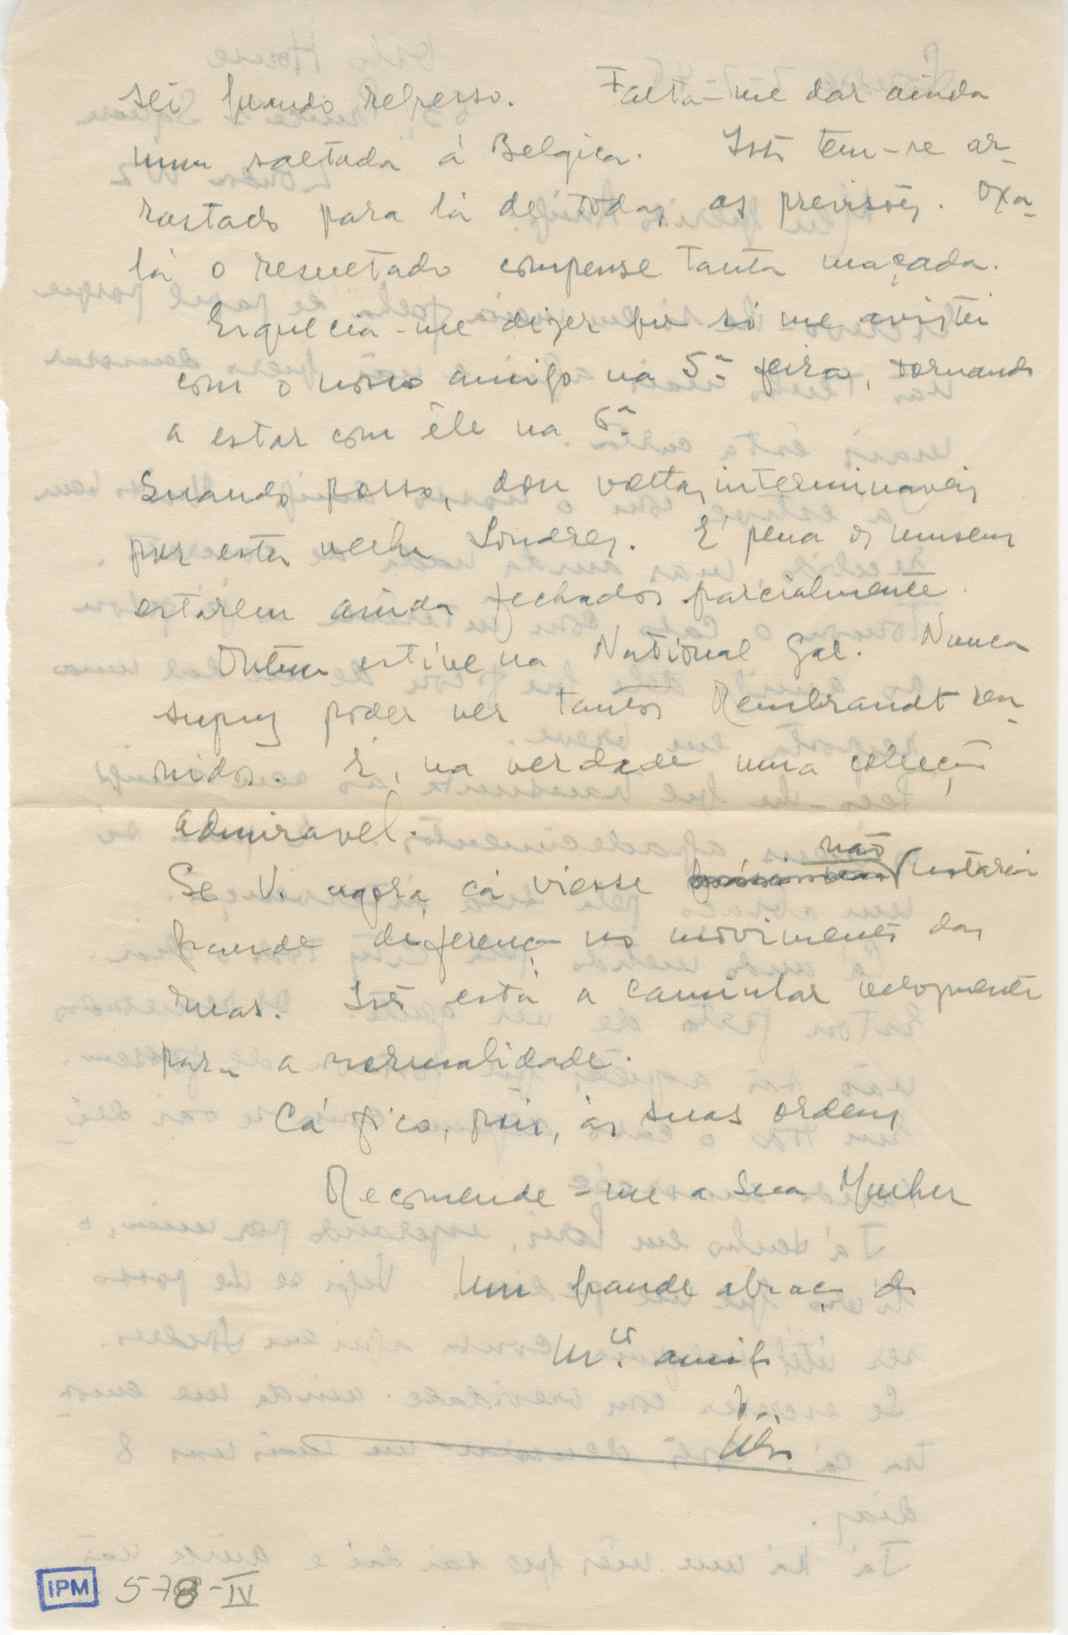 sei quando regresso. Falta-me dar ainda
uma saltada á Belgica. Isto tem-se ar-
rastado para lá de todas as previsões. Oxa-
lá o resultado compense tanta maçada.
Esquecia-me dizer que só me avistei
com o nosso amigo na 5ª feira, tornando
a estar com êle na 6ª
Quando posso, dou voltas interminaveis
por esta velha Londres. É pena os museus
estarem ainda fechados parcialmente.
Ontem estive na National Gal. Nunca
supuz poder ver tantos Rembrandt reu-
nidos. É, na verdade uma colecção
admiravel.
Se V. agora cá viesse não notaria
grande diferença no movimento das
ruas. Isto está a caminhar velozmente
para a normalidade.
Cá fico, pois, ás suas ordens
Recomende-me a Sua Mulher
Um grande abraço do
mto. amigo
IPM 578-IV